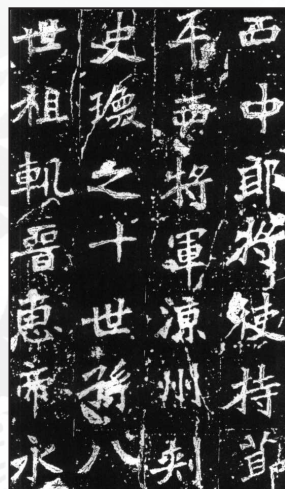 西中郎将使持節
平西将軍涼州刾
史瓊之十世孫八
世祖軌晉惠帝永